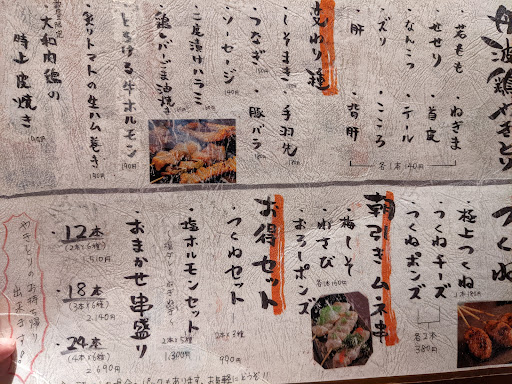 丹波鶏やきとり
・若もも
・ねぎま
・せせり
・首皮
・なんこつ
・テール
・ズリ
・こころ
・肝
・背肝
各1本140円
変わり種
・しそまき
・手羽先
・つなぎ
・豚バラ
・ソーセージ
140円
・二度漬けハラミ
190円
・鶏レバーごま油焼き
・とろける牛ホルモン
190円
・炙りトマトの生ハム巻き
190円
数量限定
・大和肉鶏の
特上皮焼き
つくね
・極上つくね
・つくねチーズ
・つくねポンズ
各2本
380円
朝引きムネ串
・梅しそ
・わさび
・おろしポンズ
各1本160円
お得セット
・つくねセット
2本×3種
990円
・塩ホルモンセット
2本×5種
1,300円
おまかせ串盛り
・12本
(2本×6種)
1,510円
・18本
(3本×6種)
2,140円
・24本
(4本×6種)
2,690円
やきとりのお持ち帰り
出来ます!!